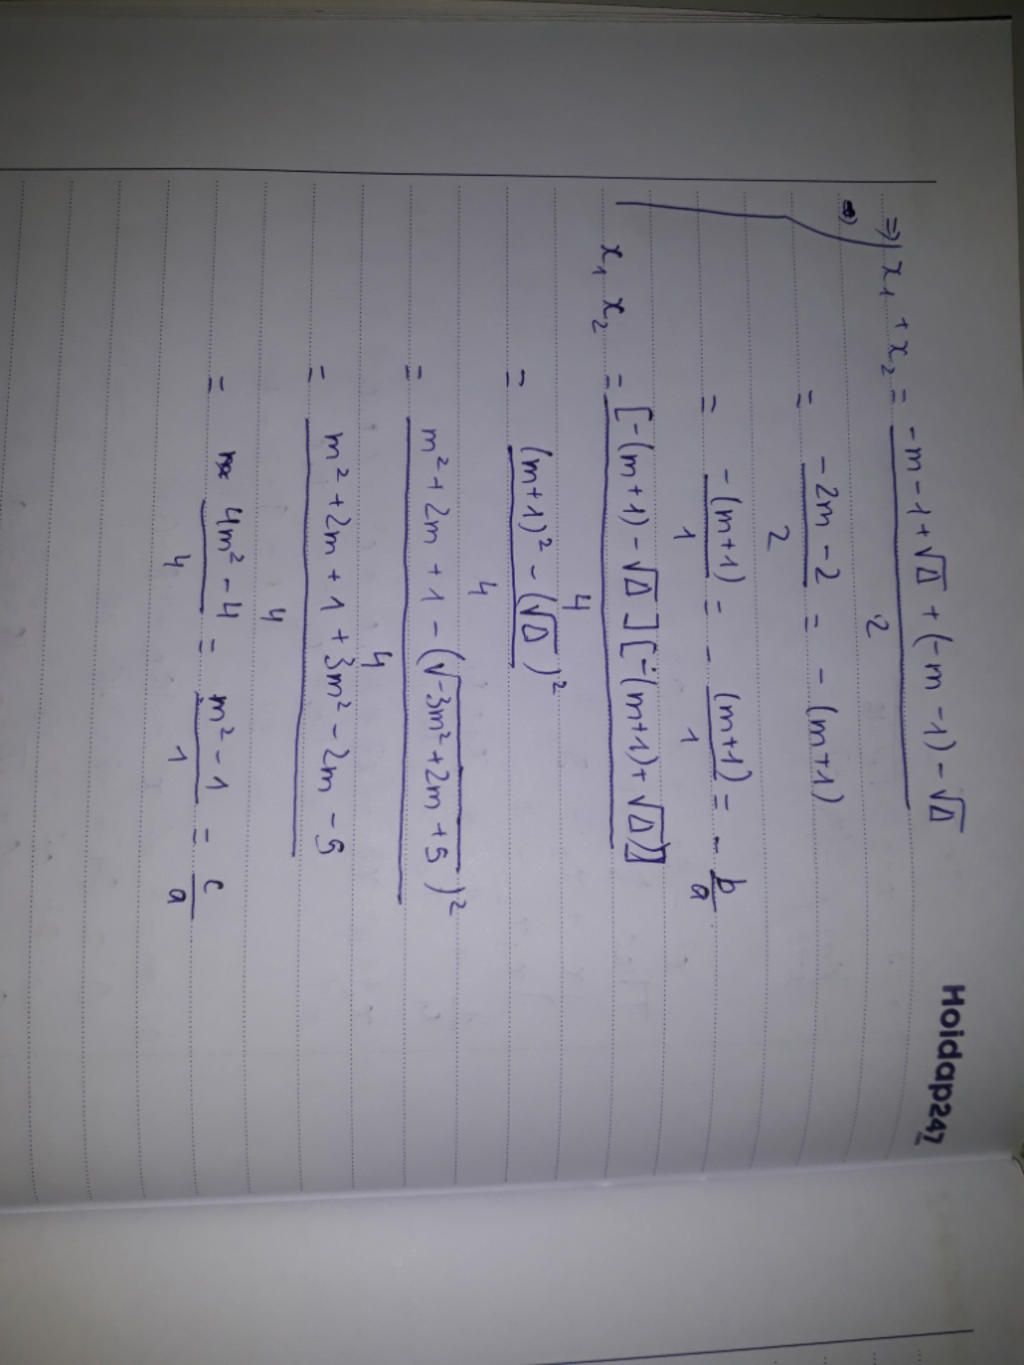 Hoidap247
=> x₁ + x₂ = (-m - 1 + √Δ + (-m - 1) - √Δ) / 2
= (-2m - 2) / 2 = - (m+1)
= -(m+1) / 1 = - (m+1) / 1 = - b/a
x₁ x₂ = [-(m+1) - √Δ][-(m+1) + √Δ)] / 4
= ((m+1)² - (√Δ)²) / 4
= (m² + 2m + 1 - (√-3m² + 2m + 5)²) / 4
= (m² + 2m + 1 + 3m² - 2m - 5) / 4
= (4m² - 4) / 4 = (m² - 1) / 1 = c/a